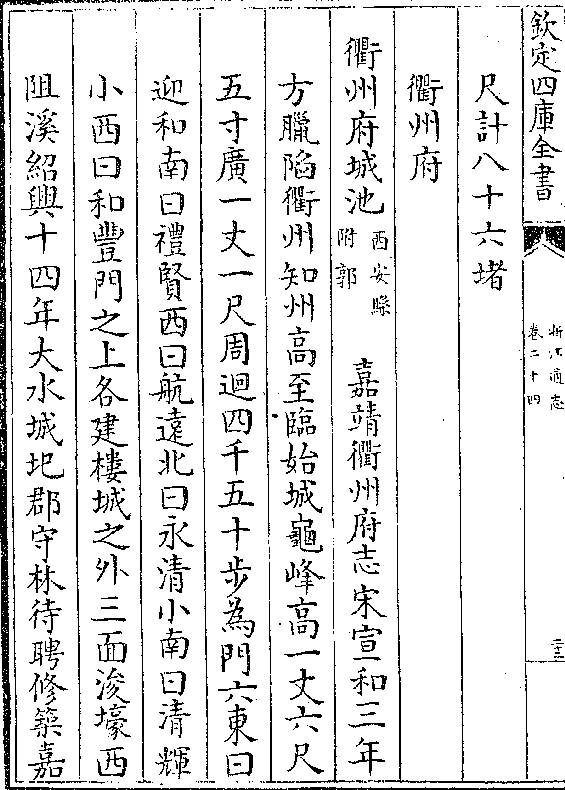 欽定四庫全書
浙江通志
卷二十四
尺計八十六堵
衢州府
衢州府城池
西安縣
附郭
嘉靖衢州府志宋宣和三年
方臘陷衢州知州高至臨始城龜峰高一丈六尺
五寸廣一丈一尺周迴四千五十步為門六東曰
迎和南曰禮賢西曰航遠北曰永清小南曰清輝
小西曰和豐門之上各建樓城之外三面浚壕西
阻溪紹興十四年大水城圯郡守林待聘修築嘉